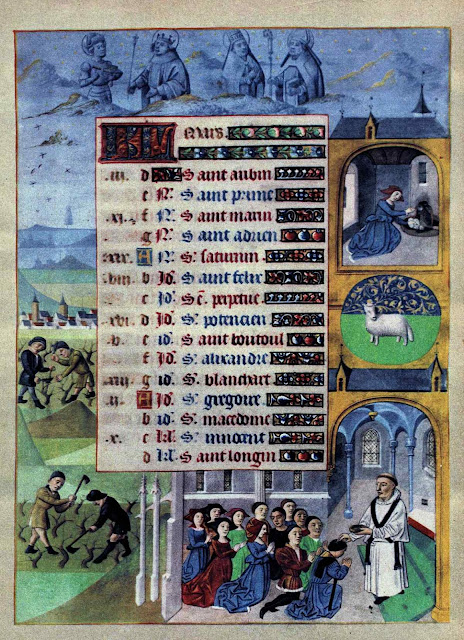 KL Mars
.iii. d Saint aubin
e N. Saint prime
.xi. f N. Saint marin
g N. Saint adrien
.xix. A N. S. saturnin
.viii. b Id. Saint felix
c Id. Sc. perpetue
.xvi. d Id. S. potencien
.v. e id. Saint boutoul
f Id. S. alixandre
.xiii. g id. S. blanchart
.ii. A Id. S. gregoire
b id. S. macedone
.x. c N. S. innocent
d N. Saint longin